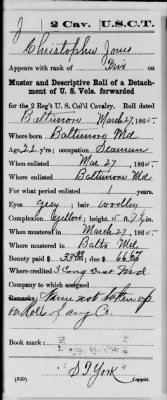 J 2 Cav. U.S.C.T.
Christopher Jones
Appears with rank of Priv on
Muster and Descriptive Roll of a Detach-
ment of U. S. Vols. forwarded
for the 2 Reg't U. S. Col'd Cavalry. Roll dated
Baltimore March 27, 1865.
Where born Baltimore Md
Age 22 y'rs; occupation Seaman
When enlisted Mar 27, 1865.
Where enlisted Baltimore Md
For what period enlisted 1 years.
Eyes grey; hair woolley
Complexion yellow; height 5 ft. 7½ in.
When mustered in March 27, 1865.
Where mustered in Balto Md
Bounty paid $ 33 ; due $ 66
Where credited 3 Cong Dist Md
Company to which assigned
Remarks: Name not taken up
on Rolls of any Co.
Book mark:
(339) S I York Copyist.